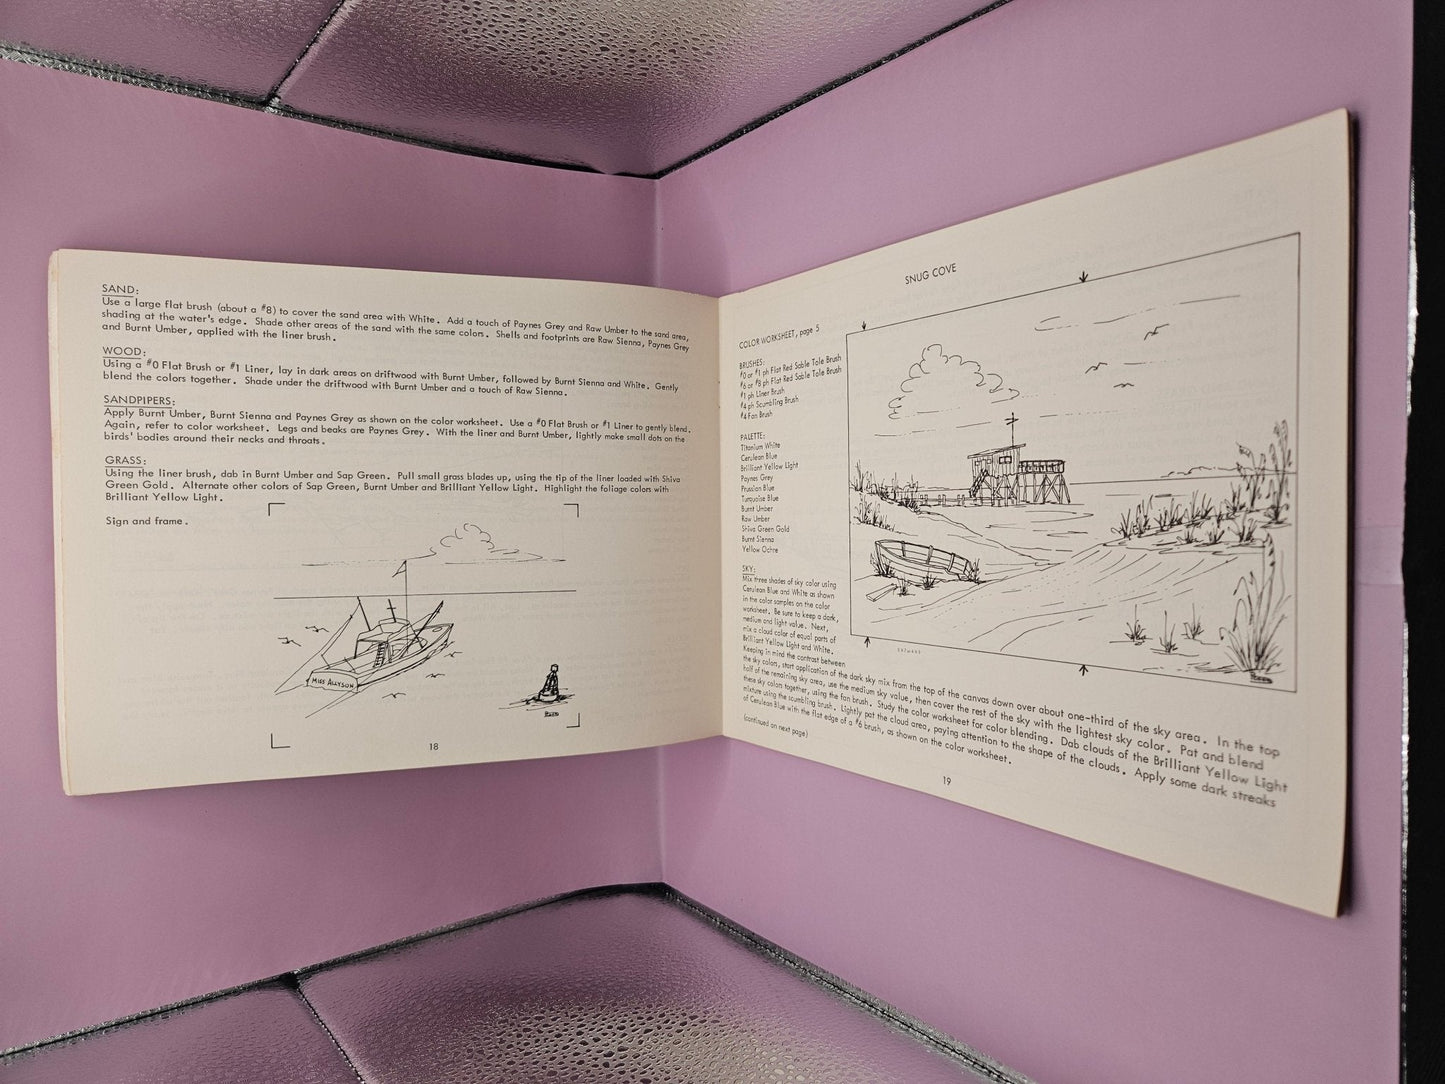 SAND:
Use a large flat brush (about a #8) to cover the sand area with White. Add a touch of Paynes Grey and Raw Umber to the sand area,
shading at the water's edge. Shade other areas of the sand with the same colors. Shells and footprints are Raw Sienna, Paynes Grey
and Burnt Umber, applied with the liner brush.
WOOD:
Using a #0 Flat Brush or #1 Liner, lay in dark areas on driftwood with Burnt Umber, followed by Burnt Sienna and White. Gently
blend the colors together. Shade under the driftwood with Burnt Umber and a touch of Raw Sienna.
SANDPIPERS:
Apply Burnt Umber, Burnt Sienna and Paynes Grey as shown on the color worksheet. Use a #0 Flat Brush or #1 Liner to gently blend.
Again, refer to color worksheet. Legs and beaks are Paynes Grey. With the liner and Burnt Umber, lightly make small dots on the
birds' bodies around their necks and throats.
GRASS:
Using the liner brush, dab in Burnt Umber and Sap Green. Pull small grass blades up, using the tip of the liner loaded with Shiva
Green Gold. Alternate other colors of Sap Green, Burnt Umber and Brilliant Yellow Light. Highlight the foliage colors with
Brilliant Yellow Light.
Sign and frame.
MISS ALLYSON
18
SNUG COVE
COLOR WORKSHEET, page 5
BRUSHES:
#0 or #1 ph Flat Red Sable Tole Brush
#6 or #8 ph Flat Red Sable Tole Brush
#1 ph Liner Brush
#4 ph Scumbling Brush
#4 Fan Brush
PALETTE:
Titanium White
Cerulean Blue
Brilliant Yellow Light
Paynes Grey
Prussian Blue
Turquoise Blue
Burnt Umber
Raw Umber
Shiva Green Gold
Burnt Sienna
Yellow Ochre
SKY:
Mix three shades of sky color using
Cerulean Blue and White as shown
in the color samples on the color
worksheet. Be sure to keep a dark,
medium and light value. Next,
mix a cloud color of equal parts of
Brilliant Yellow Light and White.
Keeping in mind the contrast between
the sky colors, start application of the dark sky mix from the top of the canvas down over about one-third of the sky area. In the top
half of the remaining sky area, use the medium sky value, then cover the rest of the sky with the lightest sky color. Pat and blend
these sky colors together, using the fan brush. Study the color worksheet for color blending. Dab clouds of the Brilliant Yellow Light
mixture using the scumbling brush. Lightly pat the cloud area, paying attention to the shape of the clouds. Apply some dark streaks
of Cerulean Blue with the flat edge of a #6 brush, as shown on the color worksheet.
(continued on next page)
19